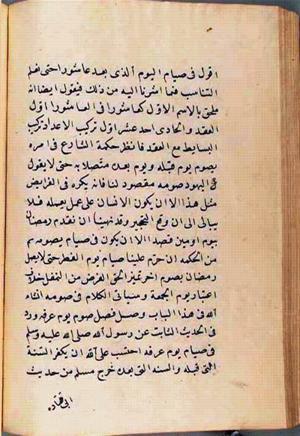 اقول في صيام اليوم الذي بعد عاشورا حتى نعلم
التناسب فيما اشرنا اليه من ذلك فيقول ايضا انه
ملحق بالاسم الاول كما عاشورا في العاشورا اول
العقد والحادى احد عشر اول تركيب الاعداد تركيب
البسايط مع العقد فانظر حكمة الشارع في امره
بصوم يوم قبله ويوم بعده متصلا به حتى لا يقول
اليهود صومه مقصود لنا فانه يكره في الفرايض
مثل هذا الا ان يكون الانسان على عمل يعمله فلا
يبالى الا ان وقع التحجير وقد نهينا ان نقدم رمضان
بيوم او يومين قصدا الا ان يكون في صيام يصومه ثم
من الحكمة ان حرم علينا صيام يوم الفطر حتى لا يصل
رمضان بصوم اخر تميز الحق الفرض من النفل خلاف
اعتبار يوم الجمعة وسياتى الكلام في صومه ان شاء
الله في هذا الباب وصل فصل صوم يوم عرفه ورد
في الحديث الثابت عن رسول الله صلى الله عليه وسلم
في صيام يوم عرفه احتسب على الله ان يكفر السنة
التي قبله والسنه التي بعده خرج مسلم من حديث
ابى قتاده